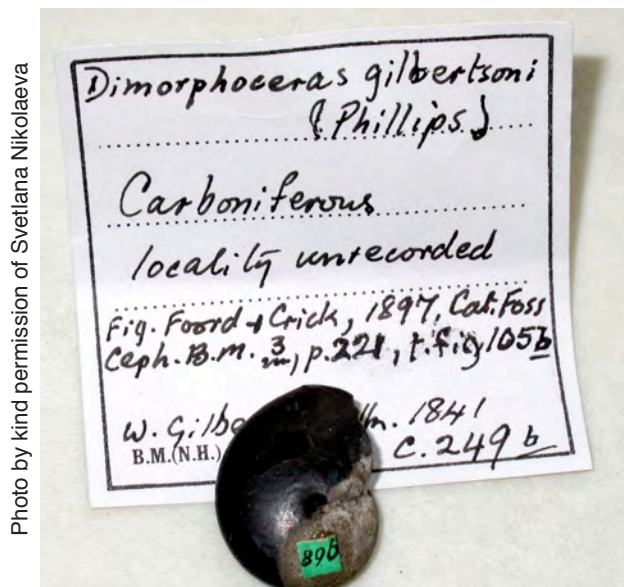 Photo by kind permission of Svetlana Nikolaeva
Dimorphoceras gilbertsoni
(Phillips)
Carboniferous
locality unrecorded
Fig. Foord + Crick, 1897, Cat. Foss
Ceph. B.M. 3, p. 221, t. fig. 105b
W. Gilbe 1841
B.M.(N.H.) C. 249 b
89b